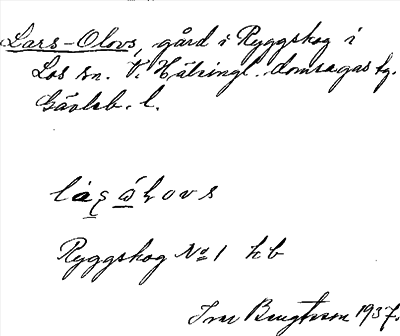 Lars-Olovs, gård i Ryggskog i
Los sn. V. Hälsingl. domsagas tg.
Gävleb. l.
Ryggskog No 1 hb
Bengtsson 1937.